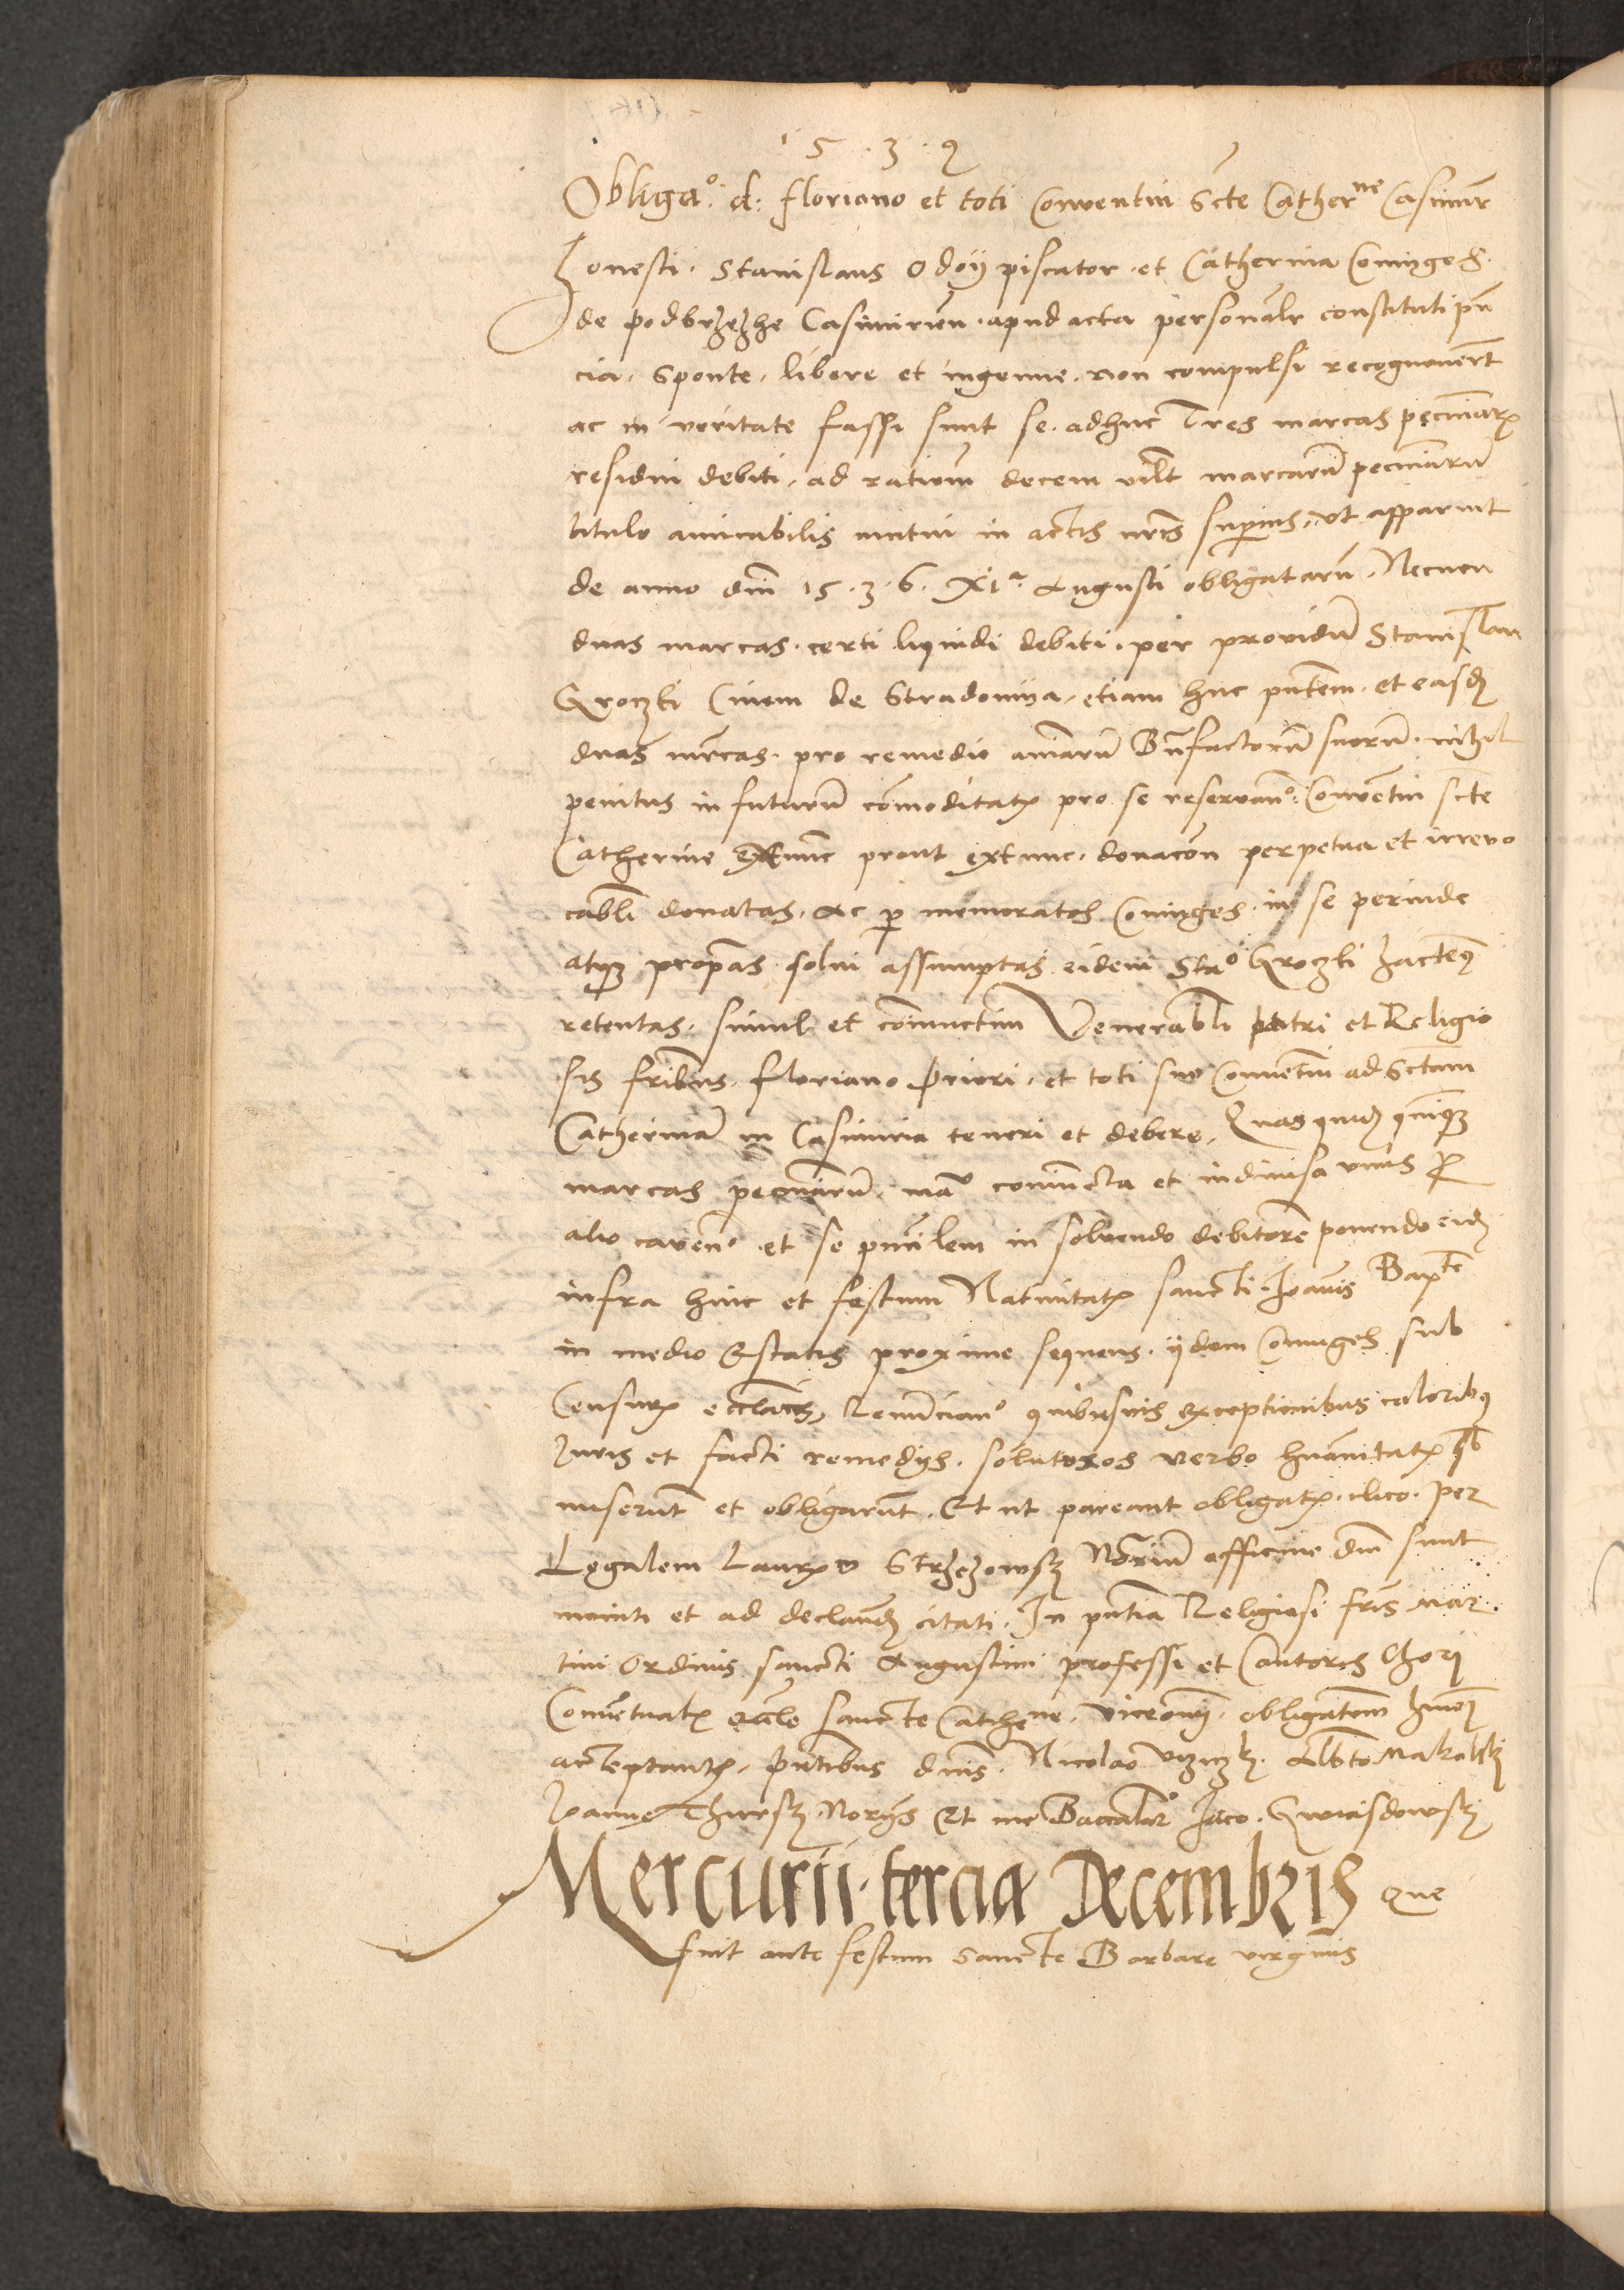 1 5 . 3 . 9
Obliga°: d: floriano et toti Conventui Scte Cather^ne Casimir
Honesti. Stanislaus Odoÿ piscator. et Catherina Coniuges.
de podbrzezhe Casimirien. apud acta personalr constituti pn
cia. Sponte. libere et ingenue. non compulsi recognouert
ac in veritate fassi sunt se. adhuc Tres marcas pecuniarx
residui debiti. ad rationem decem marcarum pecuniarum
titulo amicabilis mutui in actis nris superius, vt apparuit
de anno dni 15.3.6. XIa Augusti obligatarum. Necnon
duas marcas. certi liquidi debiti. per providum Stanislau
Groczki Ciuem de Stradomya, etiam huc pntem. et easdz
duas mrcas. pro remedio animarum Bnfactorum suorum. nichil
penitus in futurum comoditatx pro se reservan°. Conventui scte
Catherine extunc prout exnunc. donacon perpetua et irreuo
cabli donatas. Ac p memoratos Coniuges. in se perinde
atqz propas solui assumptas eidem Sta° Groczki hacten9
retentas. simul et coniunctim Venerabli patri et Religio
sis fribus. Floriano Priori. et toti suo Conuentui ad Sctam
Catherinam in Casimiria teneri et debere. Quas quidz quinqz
marcas pecuniarum. manu coniuncta et indiuisa vnus p
alio caven°. et se princilem in soluendo debitorem ponendo eidz
infra hinc et festum Natiuitatx sancti Ioannis Bapte
in medio Estatis proxime sequens. ijdem Coniuges sub
Censurx ecclacis, Renuncian° quibusuis exceptionibus caloribq
Iuris et facti remedijs. soluturos verbo humanitatx sb
miserunt et obligarunt. Et vt pareant obligatx. ilico. per
Legalem Laurx Strzezowskj Notarium officine dni sunt
moniti et ad declarandz citati. In pntia Religiosi fris Mar
tini Ordinis sancti Augustini professi et Cantoris Chori
Conuentualx eccle sancte Catherine. vicenomj. obligatem huiusm
acceptantx. Pntibus dnis. Nicolao Albto Makolskj
Ioanne Thurskj Norijs Et me Baccalar° Iaco. Gwiasdowskj
Mercurii. tercia Decembris que
fuit ante festum Sancte Barbare virginis